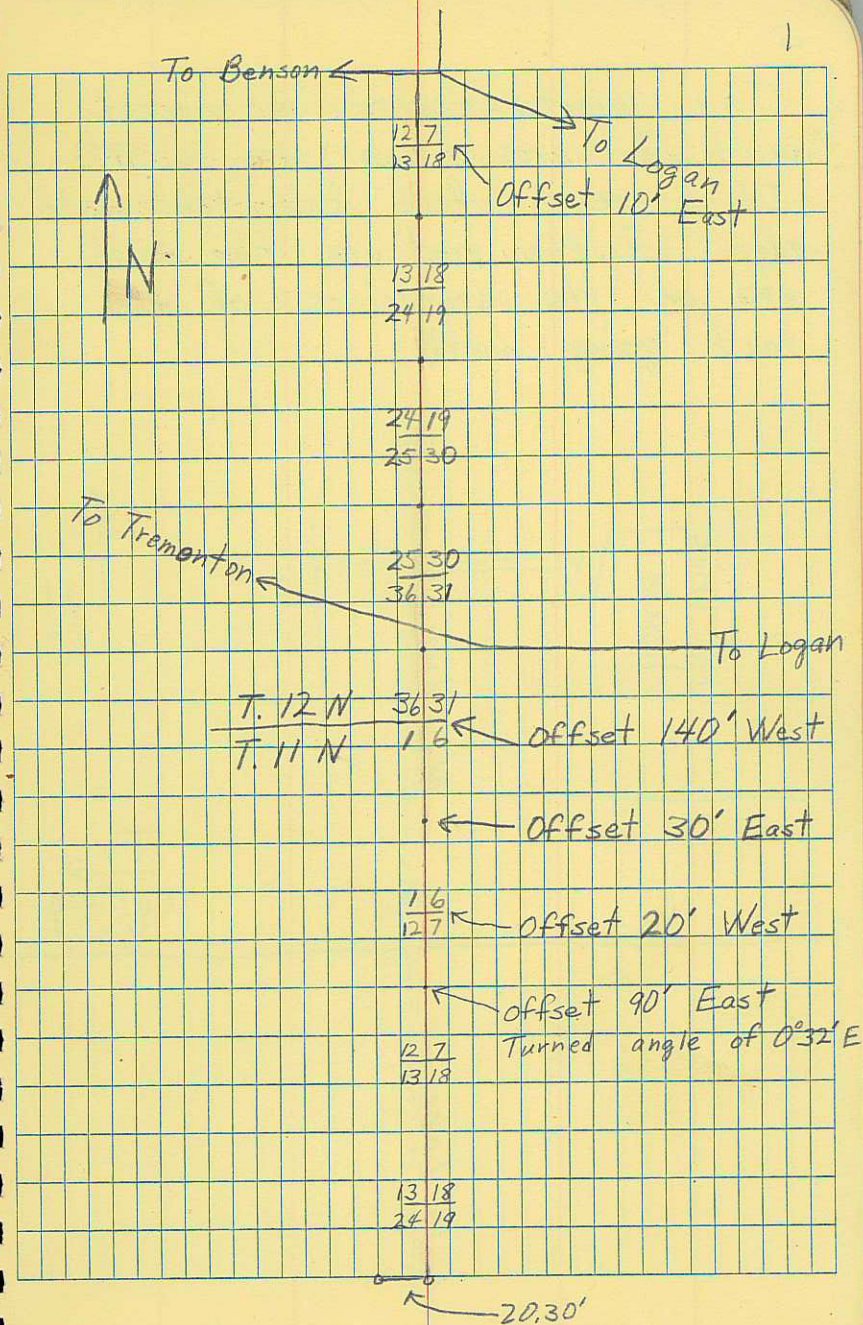 1
To Benson
To Logan
12 7
13 18
Offset 10' East
N
13 18
24 19
24 19
25 30
To Tremonton
25 30
36 31
To Logan
T. 12 N 36 31
T. 11 N 1 6
Offset 140' West
Offset 30' East
1 6
12 7
Offset 20' West
offset 90' East
Turned angle of 0°32' E
12 7
13 18
13 18
24 19
20.30'